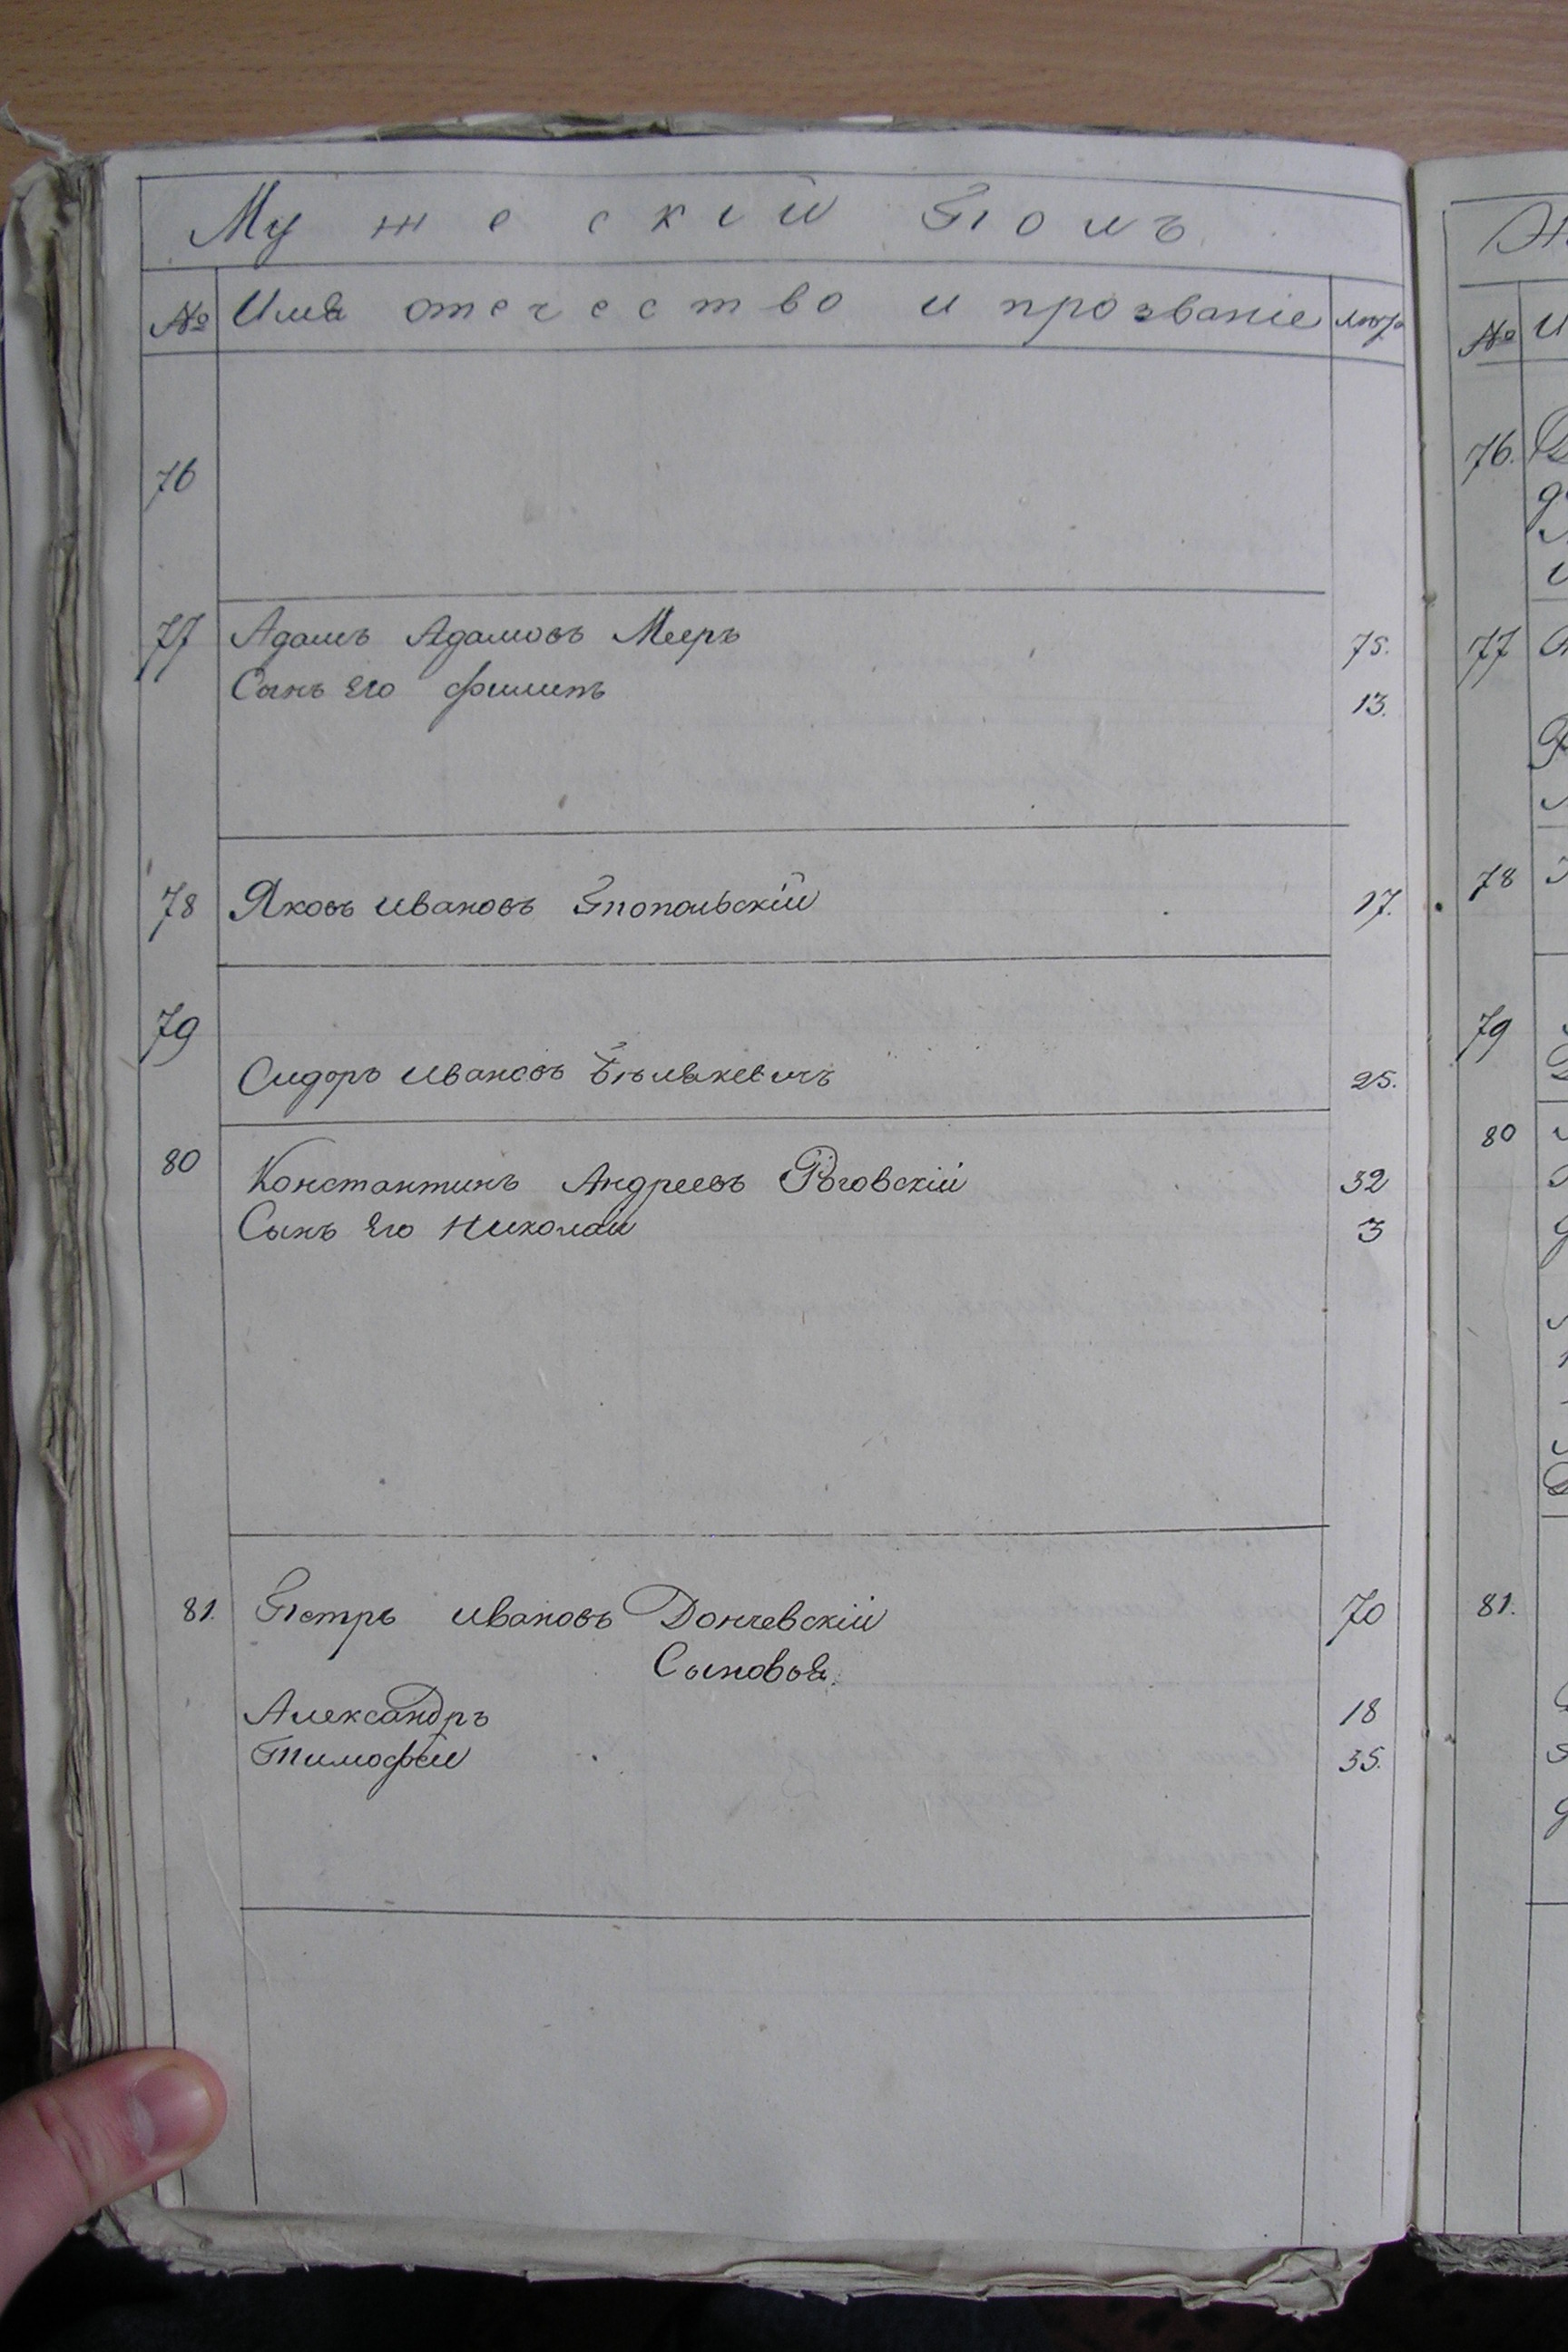 Мужескій Полъ
№ Имя отечество и прозваніе лѣта
76
77 Адамъ Адамовъ Мееръ 75.
Сынъ Его Филипъ 13.
78 Яковъ Ивановъ 17.
79
Сидоръ Ивановъ 25.
80 Константинъ Андреевъ Роговскій 32
Сынъ Его Николаи 3
81. Петръ Ивановъ Дончевскій 70
Сыновья.
Александръ 18
Тимофеи 35.
№
76.
77
78
79
80
81.